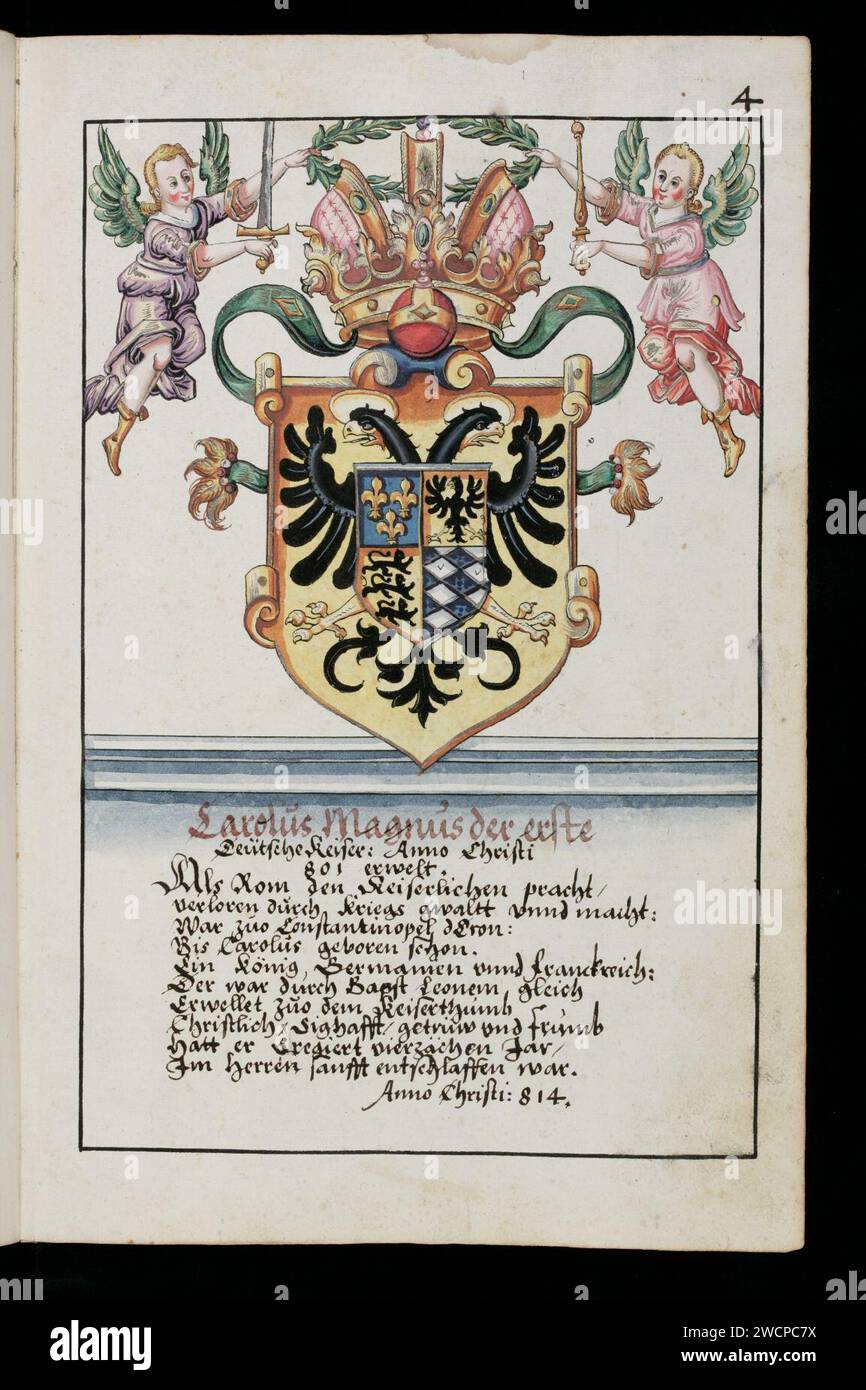 4
Carolus Magnus der erste
Deütsche Keiser: Anno Christi
801 erwelt.
Als Rom den Keiserlichen pracht/
verloren dürch Kriegs gwaltt vnnd macht:
War züo Constantinopel dCron:
Bis Carolus geboren schon.
Ein König, Germanien vnnd Franckreich:
Der war dürch Bapst Leonem, gleich
Erwellet züo dem Keiserthümb
Christlich/ Sighafft/ getrüw vnd frümb
Hatt er Gregiert vierzächen Jar/
Im Herren sanfft entschlaffen war.
Anno Christi: 814.
alamy
Image ID: 2WCPC7X
www.alamy.com